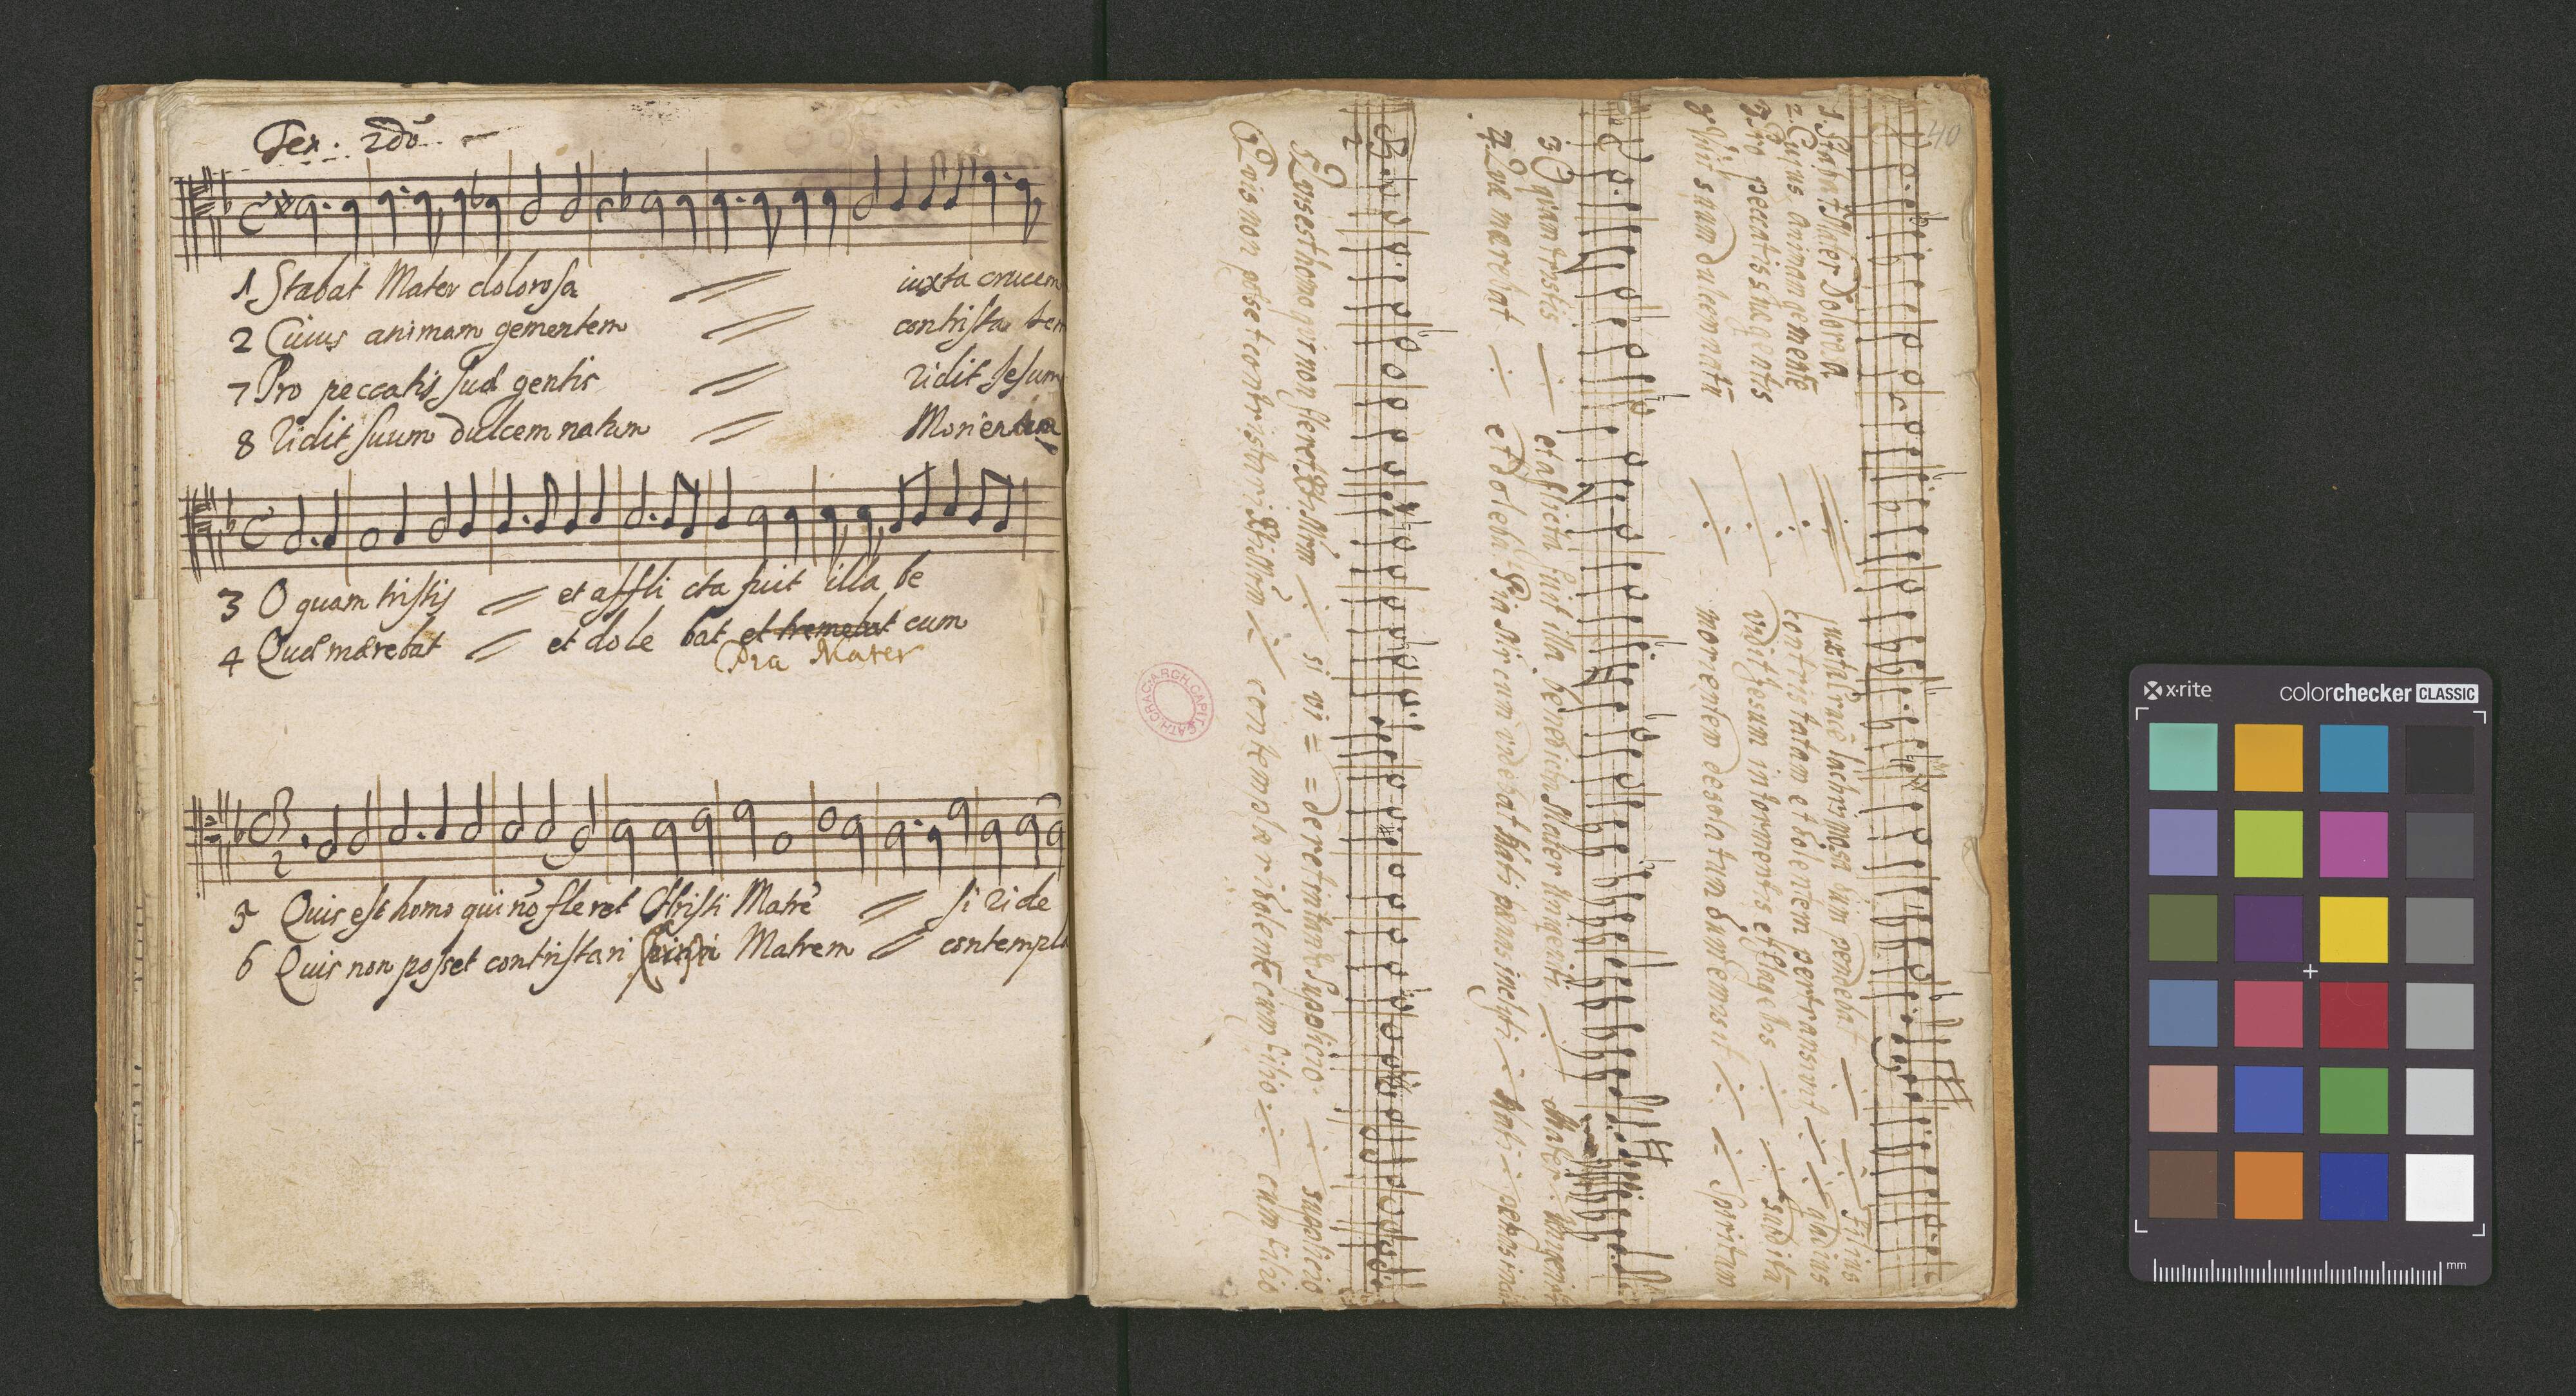 Ten. 2do.
1 Stabat Mater dolorosa iuxta crucem
2 Cuius animam gementem contrista tem
7 Pro peccatis suæ gentis vidit Jesum
8 Vidit suum dulcem natum Morientem
3 O quam tristis et affli cta fuit illa be
4 Quæ mærebat et dole bat et tremebat cum
Pia Mater
5 Quis est homo qui nō fleret Christi Matrē si vide
6 Quis non posset contristari Matrem contempla
40
1. Stabat Mater Dolorosa juxta lachrymosa dum pendebat filius
2. Cuius animam gementē contristatam et dolentem pertransivit gladius
7. Pro peccatis suæ gentis vidit Jesum in tormentis et flagelis subditū
8 Vidit suum dulcem natū morientem desolatum dum emisit spiritum
3 O quam tristis et aflicta fuit illa benedicta Mater Unigeniti Mater Unigeniti
4. Quæ mærebat et dolebat Pia Mater cum videbat Nati pænas inclyti Nati pænas incly
5 Quis est homo qui non fleret Matrem si vi = = deret in tanto suplicio suplicio
6 Quis non posset contristari Matrem contemplari dolentē cum filio cum filio
ARCH. CAPIT. CATH. CRAC.
x·rite colorchecker CLASSIC
mm